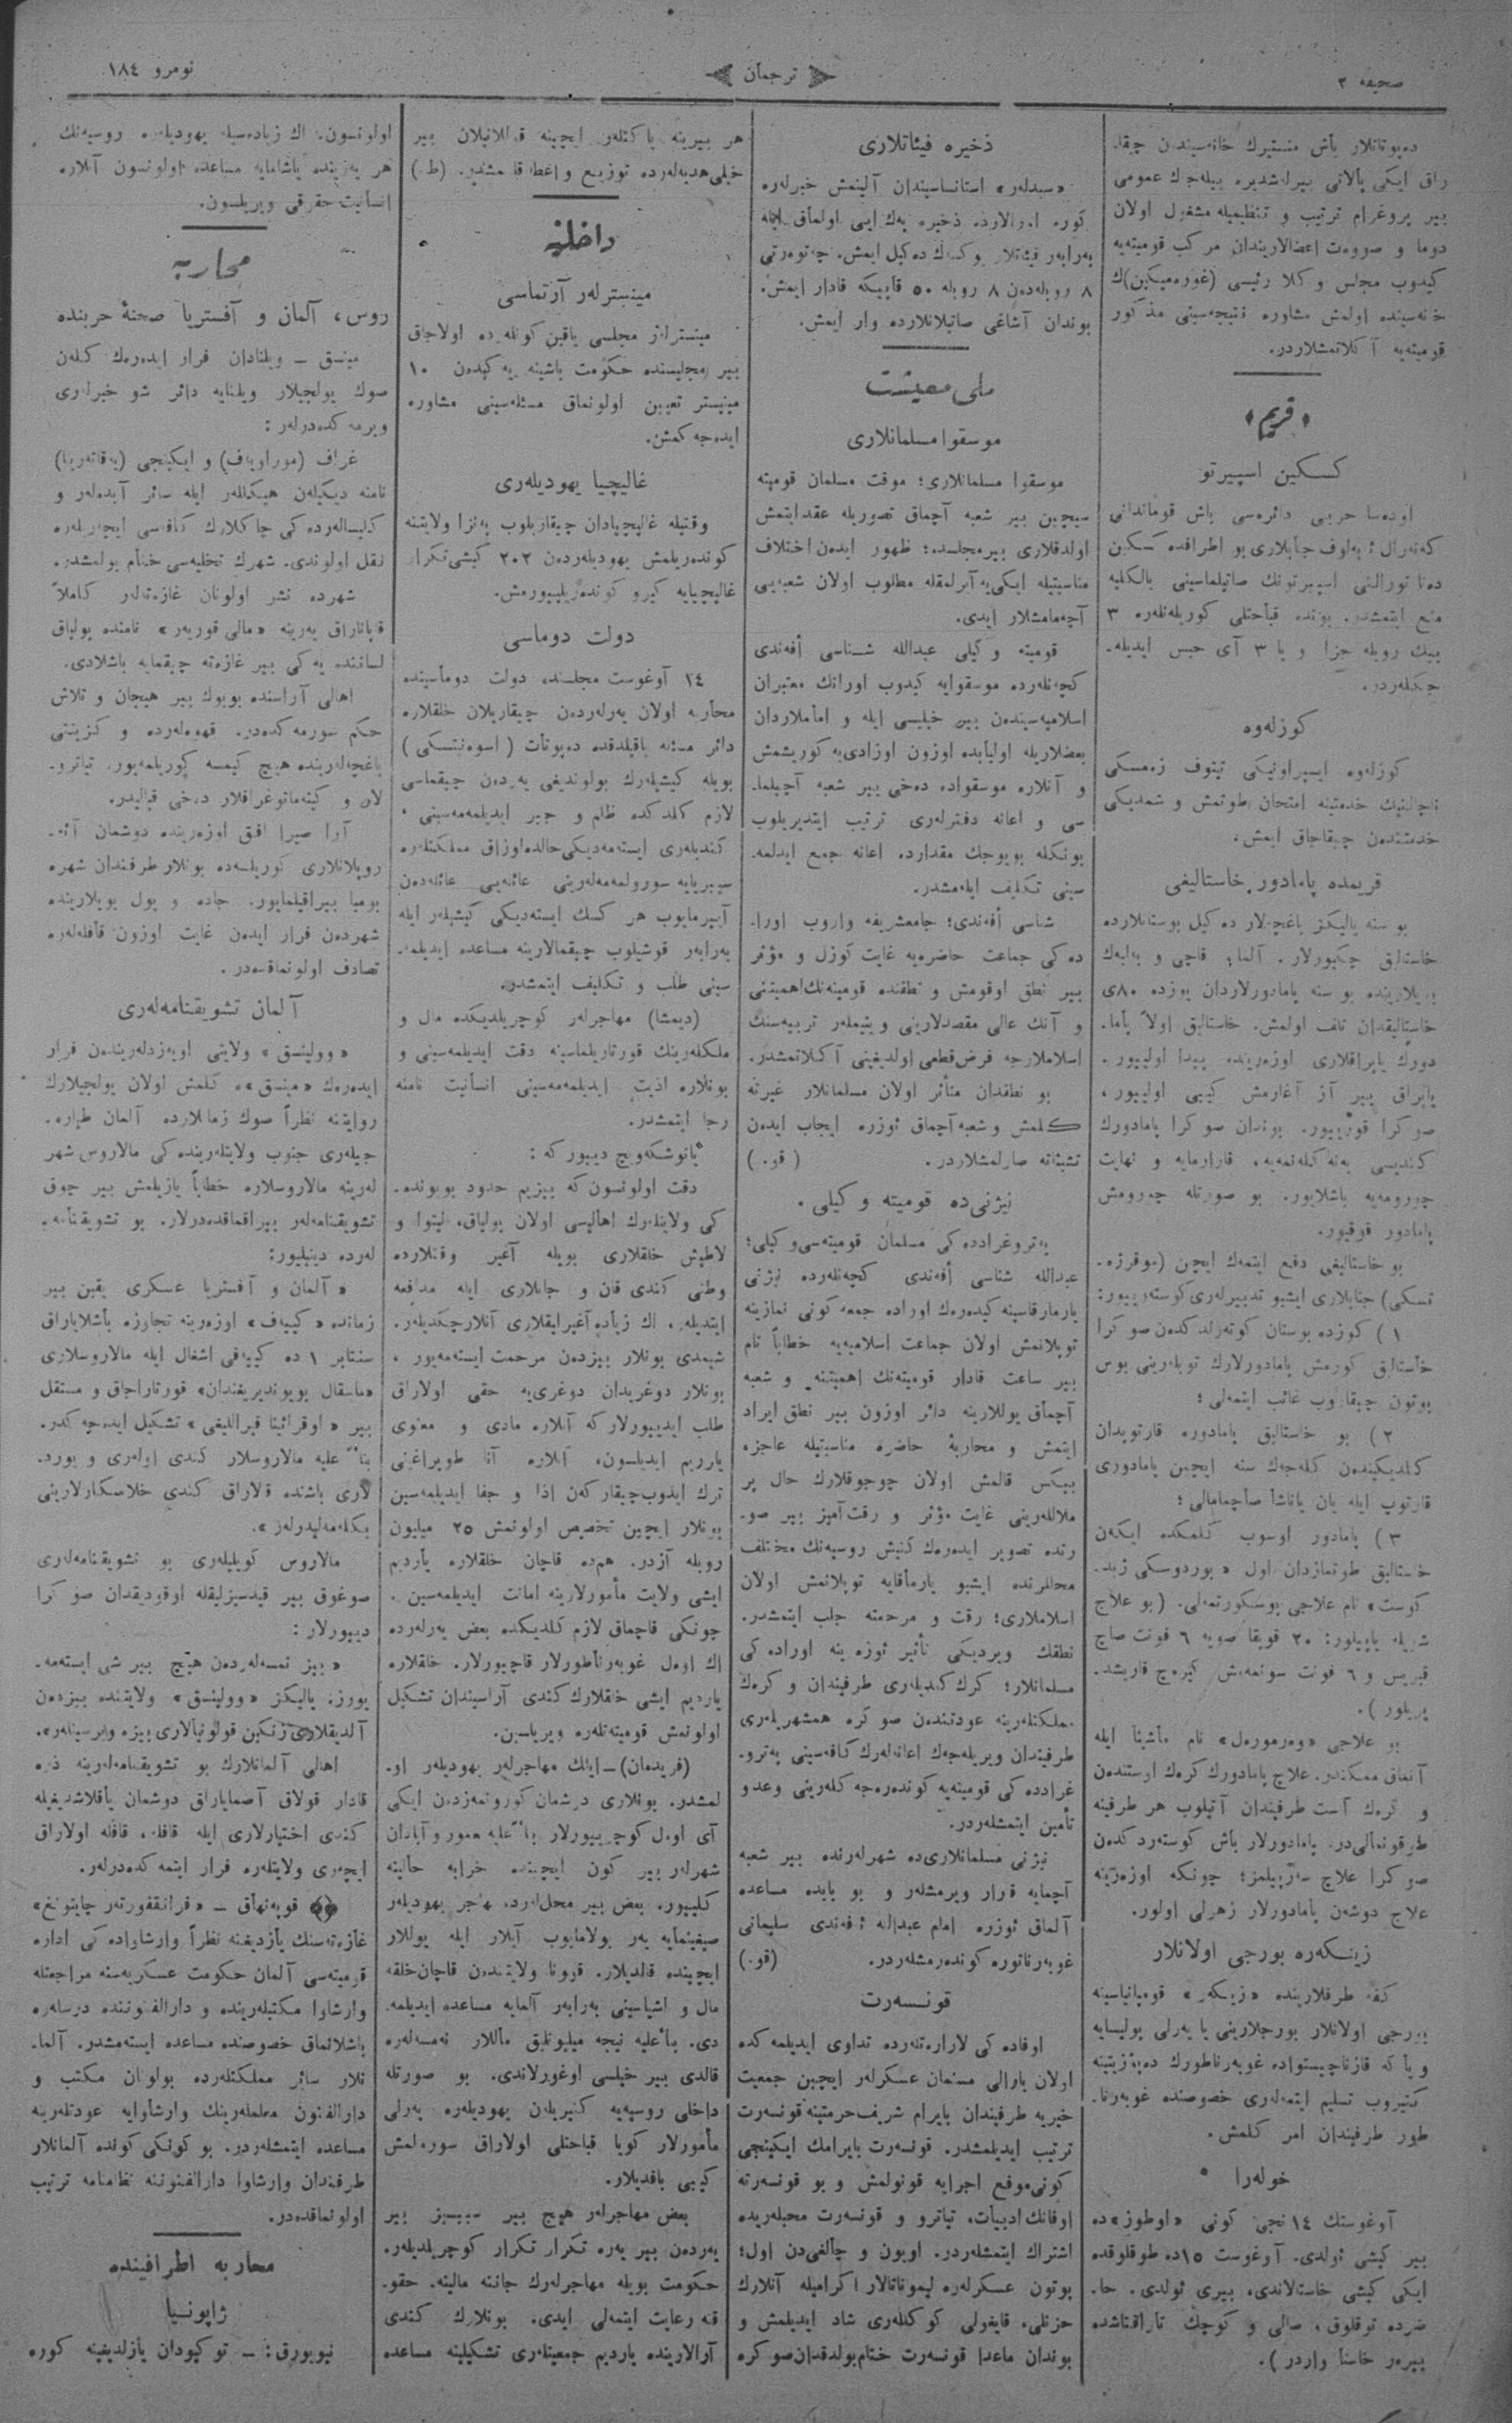 صحیفه ۲
ترجمان
نومرو ١٨٤
دەپوتاتلار باش منستیرك خانەسیندن چیقا.
راق ایكی پالاتی بیرلەشدیره بیلەجك عمومی
بیر پروغرام ترتیب و تنظیمیله مشغول اولان
دوما و صووەت اعضالاریندان مركب قومیتەیه
كیدوب مجلس وكلا رئیسی (غورەمیكین)ك
خانەسینده اولمش مشاوره نتیجەسینی مذكور
قومیتەیه آكلاتمشلاردر.
«قریم»
كسكین اسپیرتو
اودەسا حربی دائرەسی باش قوماندانی
منع ایتمشدر. بونده قباحتلی كوریلەنلەره ۳
بیك روبله جزا و یا ۳ آی حبس ایدیله.
جكلەردر.
كوزلەوه
خدمتندن چیقاجاق ایمش.
قریمده پامادور خاستالیغی
بو سنه یالیكز باغچەلار دەكیل بوستانلارده
خاستالیق چكیورلار. آلما، قاچی و بەلبەك
بویلارینده بو سنه پامادورلاردان یوزده ۸۰ی
خاستالیقدان تلف اولمش. خاستالیق اولا پاما.
دورك یاپراقلاری اوزەرینده پیدا اولییور.
یاپراق بیر آز آغارمش كیبی اولییور،
صوكرا قورییور. بوندان صوكرا پامادورك
كندیسی بەنەكلەنمەیه، قارارمایه و نهایت
چورومەیه باشلایور. بو صورتله چورومش
پامادور قوقیور.
بو خاستالیغی دفع ایتمەك ایچون (موقرژه.
تسكی) جنابلاری ایشبو تدبیرلەری كوستەرییور:
۱) كوزده بوستان كوتەرلدكدن صوكرا
خاستالق كورمش پامادورلارك توبلەرینی بوس
بوتون چیقاروب غائب ایتمەلی؛
۲) بو خاستالیق پامادوره قارتوپدان
كلدیكیندن كلەجەك سنه ایچین پامادوری
قارتوپ ایله یان یاناشا صاچمامالی؛
۳) پامادور اوسوب كلمكده ایكەن
خاستالیق طوتمازدان اول «بوردوسكی ژید.
كوست» نام علاجی بوسكورتمەلی. (بو علاج
شویله یاپیلور: ۲۰ قوبقا صویه ٦ فونت صاچ
قبریس و ٦ فونت سونمەمش كیرەچ قاریشد.
یریلور).
بو علاجی «وەرمورەل» نام ماشینا ایله
آتماق ممكندر. علاج پامادورك كرەك اوستندن
و كرەك آست طرفیندان آتیلوب هر طرفینه
طوقونمالی‌در. پامادورلار باش كوستەردكدەن
صوكرا علاج سەرپیلمز؛ چونكه اوزەرینه
علاج دوشەن پامادورلار زهرلی اولور.
زینكەره بورجی اولانلار
كفه طرفلارینده «زینكەر» قومپانیاسینه
بورجی اولانلار بورجلارینی یا یەرلی پولیسایه
و یا كه قازناچیستواده غوبەرناطورك دەپوزیتینه
كتیروب تسلیم ایتمەلەری خصوصنده غوبەرنا.
طور طرفیندان امر كلمش.
خولەرا
آوغوستك ١٤نجی كونی «اوطوز»ده
بیر كیشی ئولدی. آوغوست ١٥ده طوقلوقده
ایكی كیشی خاستالاندی، بیری ئولدی. حا.
ضرده توقلوق، صالی و كوچك تاراقتاشده
بیرەر خاستا واردر).
ذخیره فیئاتلاری
«سبدلەر» استانساسیندان آلینمش خبرلەره
كوره اورالارده ذخیره پەك ایی اولماق ایله
بەرابەر فیئاتلار یوكسك دەكیل ایمش. چەتوەرتی
۸ روبلەدەن ۸ روبله ۵۰ قاپیكه قادار ایمش.
بوندان آشاغی صاتیلانلارده وار ایمش.
ملی معیشت
موسقوا مسلمانلاری
موسقوا مسلمانلاری؛ موقت مسلمان قومیته
سیچین بیر شعبه آچماق تصوریله عقد ایتمش
اولدقلاری بیر مجلسده؛ ظهور ایدەن اختلاف
مناسبتیله ایكی‌یه آیرلمقله مطلوب اولان شعبەیی
آچەمامشلار ایدی.
قومیته وكیلی عبدالله شناسی أفەندی
كچەنلەرده موسقوایه كیدوب اورانك معتبران
اسلامیەسیندەن بیر خیلیسی ایله و اماملاردان
بعضلاریله اولیاپده اوزون اوزادی‌یه كوریشمش
و آنلاره موسقواده دەخی بیر شعبه آچیلما.
سی و اعانه دفترلەری ترتیب ایتدیریلوب
بونكله بویوجك مقدارده اعانه جمع ایدلمه.
سینی تكلیف ایلەمشدر.
شناسی أفەندی؛ جامعشریفه واروب اورا.
دەكی جماعت حاضرەیه غایت كوزل و مؤثر
بیر نطق اوقومش و نطقنده قومیتەنك اهمیتنی
و آنك عالی مقصدلارینی و یتیملەر تربیەسنك
اسلاملارجه فرض قطعی اولدیغینی آكلاتمشدر.
بو نطقدان متأثر اولان مسلمانلار غیرته
كلمش و شعبه آچماق ئوزره ایجاب ایدەن
تشبثاته صارلمشلاردر. (قو.)
نیژنی‌ده قومیته وكیلی.
پەتروغرادده‌كی مسلمان قومیتەسی وكیلی؛
عبدالله شناسی أفەندی كچەنلەرده نیژنی
یارمارقاسینه كیدەرەك اوراده جمعه كونی نمازینه
توپلانمش اولان جماعت اسلامیەیه خطاباً تام
بیر ساعت قادار قومیتەنك اهمیتینه و شعبه
آچماق یوللارینه دائر اوزون بیر نطق ایراد
ایتمش و محاربهٔ حاضره مناسبتیله عاجزه
بیكس قالمش اولان چوجوقلارك حال پر
ملاللەرینی غایت مؤثر و رقت‌آمیز بیر صو.
رتده تصویر ایدەرەك كنیش روسیەنك مختلف
محاللرنده ایشبو یارماقایه توپلانمش اولان
اسلاملاری؛ رقت و مرحمته جلب ایتمشدر.
نطقك ویردیكی تأثیر ئوزەرینه اورادەكی
مسلمانلار؛ كرك كندیلەری طرفیندان و كرەك
مملكتلەرینه عودتندەن صوكره همشهریلەری
طرفیندان ویریلەجەك اعانەلەرك كافەسینی پەترو.
غراددەكی قومیتەیه كوندەرەجەكلەرینی وعد و
تأمین ایتمشلەردر.
نیژنی مسلمانلاری‌ده شهرلەرنده بیر شعبه
آچمایه قرار ویرمشلەر و بو بابده مساعده
آلماق ئوزره امام عبدالله أفەندی سلیمانی
غوبەرناتوره كوندەرمشلەردر. (قو.)
قونسەرت
اوفادەكی لازارەتلەرده تداوی ایدیلمەكده
اولان یارالی مسلمان عسكرلەر ایچین جمعیت
خیریه طرفیندان بایرام شریف حرمتینه قونسەرت
ترتیب ایدیلمشدر. قونسەرت بایرامك ایكینجی
كونی موقع اجرایه قونولمش و بو قونسەرته
اوفانك ادبیات، تیاترو و قونسەرت محبلەریده
اشتراك ایتمشلەردر. اویون و چالغی‌دن اول؛
بوتون عسكرلەره لیموناتالار اكرامیله آنلارك
حزنلی، قایغولی كوكللەری شاد ایدیلمش و
بوندان ماعدا قونسەرت ختام بولدقدان صوكره
هر بیرینه پاكتلەر ایچینه قوللانیلان بیر
خیلی هدیەلەرده توزیع و اعطا قلنمشدر. (ط.)
داخلیه
مینیسترلەر آرتماسی
مینسترلر مجلسی یاقین كونلەرده اولاجاق
بیر مجلیسنده حكومت باشینه یەكیدەن ١٠
مینیستر تعیین اولونماق مسئلەسینی مشاوره
ایدەجەكمش.
غالیچیا یهودیلەری
وقتیله غالیچیادان چیقاریلوب پەنزا ولایتنه
كوندەریلمش یهودیلەردەن ۲۰۲ كیشی تكرار
غالیچیایه كیرو كوندەریلییورمش.
دولت دوماسی
١٤ آوغوست مجلسنده دولت دوماسینده
محاربه اولان یەرلەردەن چیقاریلان خلقلاره
دائر مسئله باقیلدقده دەپوتات (اسوەنیتسكی)
بویله كیشیلەرك بولوندیغی یەردەن چیقماسی
لازم كلدكده ظلم و جبر ایدیلمەمەسینی،
كندیلەری ایستەمەدیكی حالده اوزاق مملكتلەره
سیبریایه سورولمەمەلەرینی عائلەیی عائلەدەن
آییرمایوب هر كسك ایستەدیكی كیشیلەر ایله
بەرابەر قوشیلوب چیقمالارینه مساعده ایدیلمه.
سینی طلب و تكلیف ایتمشدر.
(دیمشا) مهاجرلەر كوچریلدیكده مال و
ملكلەرینك قورتاریلماسینه دقت ایدیلمەسینی و
بونلاره اذیت ایدیلمەمەسینی انسانیت نامنه
رجا ایتمشدر.
یانوشكەویچ دییوركه:
دقت اولونسون كه بیزیم حدود بویونده.
كی ولایتلەرك اهالیسی اولان پولیاق، لیتوا و
لاطیش خلقلاری بویله آغیر وقتلارده
وطنی كندی قان و جانلاری ایله مدافعه
ایتدیلەر، اك زیاده آغیرلیقلاری آنلار چكدیلەر.
شیمدی بونلار بیزدەن مرحمت ایستەمەیور،
بونلار دوغریدان دوغری‌یه حقی اولاراق
طلب ایدییورلاركه آنلاره مادی و معنوی
یاردیم ایدیلسون، آنلاره آنا طوپراغینی
ترك ایدوب چیقاركەن اذا و جفا ایدیلمەسین
بونلار ایچین تخصیص اولونمش ۲۵ میلیون
روبله آزدر. هم‌ده قاچان خلقلاره یاردیم
ایشی ولایت مأمورلارینه امانت ایدیلمەسین.
چونكی قاچماق لازم كلدیكده بعض یەرلەرده
اك اول غوبەرناطورلار قاچیورلار. خلقلاره
یاردیم ایشی خلقلارك كندی آراسیندان تشكیل
اولونمش قومیتەتلەره ویریلسین.
(فریدمان) ـ ایلك مهاجرلەر یهودیلەر او.
لمشدر. بونلاری دوشمان كورونمەزدن ایكی
آی اول كوچرییورلار بناءً علیه معمور و آبادان
شهرلەر بیر كون ایچینده خرابه حالینه
كلییور. بعض بیر محل‌لەرده مهاجر یهودیلەر
صیغینمایه یەر بولامایوب آیلار ایله یوللار
ایچینده قالدیلار. قوونا ولایتندەن قاچان خلقه
مال و اشیاسینی بەرابەر آلمایه مساعده ایدیلمه.
دی. بناءً علیه نیجه میلیونلیق ماللار نەمسەلەره
قالدی بیر خیلیسی اوغورلاندی. بو صورتله
داخلی روسیەیه كتیریلەن یهودیلەره یەرلی
مأمورلار كویا قباحتلی اولاراق سورەلمش
كیبی باقدیلار.
بعض مهاجرلەر هیچ بیر سببسیز بیر
یەردەن بیر یەره تكرار تكرار كوچریلدیلەر.
حكومت بویله مهاجرلەرك جاننه مالینه، حقو.
قنه رعایت ایتمەلی ایدی. بونلارك كندی
آرالارینده یاردیم جمعیتلەری تشكیلینه مساعده
اولونسون، اك زیادەسیله یهودیلەره روسیەنك
هر یەرینده یاشامایه مساعده اولونسون آنلاره
انسانیت حقوقی ویریلسون.
محاربه
روس، آلمان و آفستریا صحنهٔ حربنده
مینسق ـ ویلنادان فرار ایدەرەك كیلەن
صوك یولجیلار ویلنایه دائر شو خبرلەری
ویرمەكدەدرلەر:
غراف (موراویەف) و ایكینجی (یەقاتەرینا)
نامنه دیكیلەن هیكللەر ایله سائر آبدەلەر و
كلیسالەردەكی چاكلارك كافەسی ایچەریلەره
نقل اولوندی. شهرك تخلیەسی ختام بولمشدر.
شهرده نشر اولونان غازەتەلەر كاملاً
قاپاناراق یەرینه «مالی قوریەر» نامنده پولیاق
لساننده یەكی بیر غازەته چیقمایه باشلادی.
اهالی آراسنده بویوك بیر هیجان و تلاش
حكم سورمەكدەدر. قهوەلەرده و كزینتی
باغچەلەرینده هیچ كیمسه كوریلمەیور، تیاترو.
لار و كینەماتوغرافلار دەخی قپالیدر.
آرا صیرا افق اوزەرینده دوشمان آئه.
روپلانلاری كوریلسەده بونلار طرفندان شهره
بومبا بیراقیلمایور. جاده و یول بویلارینده
شهردەن فرار ایدەن غایت اوزون قافلەلەره
تصادف اولونماقدەدر.
آلمان تشویقنامەلەری
«وولینسق» ولایتی اویەزدلەریندەن فرار
ایدەرەك «مینسق»ه كلمش اولان یولجیلارك
روایتنه نظراً صوك زمانلارده آلمان طیاره.
جیلەری جنوب ولایتلەریندەكی مالاروس شهر
لەرینه مالاروسلاره خطاباً یازیلمش بیر چوق
تشویقنامەلەر بیراقماقدەدرلار. بو تشویقنامه.
لەرده دینیلیور:
«آلمان و آفستریا عسكری یقین بیر
زمانده «كییەف» اوزەرینه تجاوزه باشلایاراق
سنتابر ١ده كییەفی اشغال ایله مالاروسلاری
«ماسقال بویوندیریغندان» قورتاراجاق و مستقل
بیر «اوقرائینا قیراللیغی» تشكیل ایدەجەكدر.
بناءً علیه مالاروسلار كندی اولەری و یورد.
لاری باشنده قالاراق كندی خلاصكارلارینی
بكلەمەلیدرلەر».
مالاروس كویلیلەری بو تشویقنامەلەری
صوغوق بیر قیدسیزلیقله اوقودیقدان صوكرا
دییورلار:
«بیز نمسەلەردەن هیچ بیر شی ایستەمه.
یورز. یالیكز «وولینسق» ولایتنده بیزدەن
آلدیقلاری زنكین قولونیالاری بیزه ویرسینلەر».
اهالی آلمانلارك بو تشویقنامەلەرینه ذره
قادار قولاق آصمایاراق دوشمان یاقلاشدیغیله
كندی اختیارلاری ایله قافله، قافله اولاراق
ایچەری ولایتلەره فرار ایتمەكدەدرلەر.
قوپەنهاق ـ «فرانقفورتەر چایتونغ»
غازەتەسنك یازدیغنه نظراً وارشاوادەكی اداره
قومیتەسی آلمان حكومت عسكریەسنه مراجعتله
وارشاوا مكتبلەرینده و دارالفنوننده درسلەره
باشلانماق خصوصنده مساعده ایستەمشدر. آلما.
نلار سائر مملكتلەرده بولونان مكتب و
دارالفنون معلملەرینك وارشاوایه عودتلەرینه
مساعده ایتمشلەردر. بو كونكی كونده آلمانلار
طرفندان وارشاوا دارالفنونینه نظامنامه ترتیب
اولونماقدەدر.
محاربه اطرافینده
ژاپونیا
نیویورق: ـ توكیودان یازلدیغینه كوره